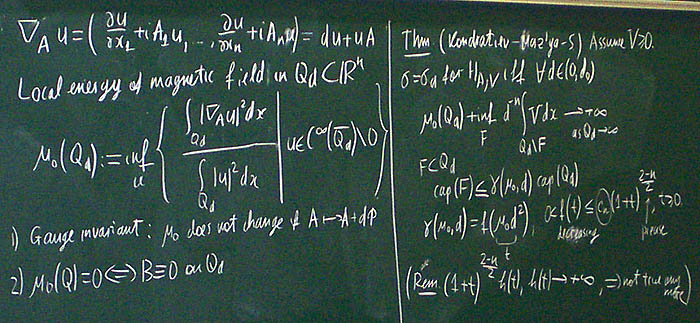 ∇_A u = (∂u/∂x_1 + iA_1u, ..., ∂u/∂x_n + iA_n u) = du + uA
Local energy of magnetic field in Q_d ⊂ ℝ^n
μ_0(Q_d) := inf_u { ∫_{Q_d} |∇_A u|^2 dx / ∫_{Q_d} |u|^2 dx | u ∈ C^∞(Q̄_d) \ 0 }
1) Gauge invariant: μ_0 does not change if A ↦ A + dφ
2) μ_0(Q) = 0 ⟺ B ≡ 0 on Q_d
Thm. (Kondrat'ev-Maz'ya-S) Assume V ≥ 0.
σ = σ_d for H_{A,V} iff ∀ d ∈ (0, d_0)
μ_0(Q_d) + inf_F d^{-n} ∫_{Q_d\F} V dx → +∞
as Q_d → ∞
F ⊂ Q_d
cap(F) ≤ γ(μ_0, d) cap(Q_d)
γ(μ_0, d) = f(μ_0 d^2), 0 < f(t) ≤ c_n (1+t)^{(2-n)/2}, t ≥ 0.
t decreasing precise
(Rem. (1+t)^{(2-n)/2} h(t), h(t) → +∞, ⟹ not true any more)